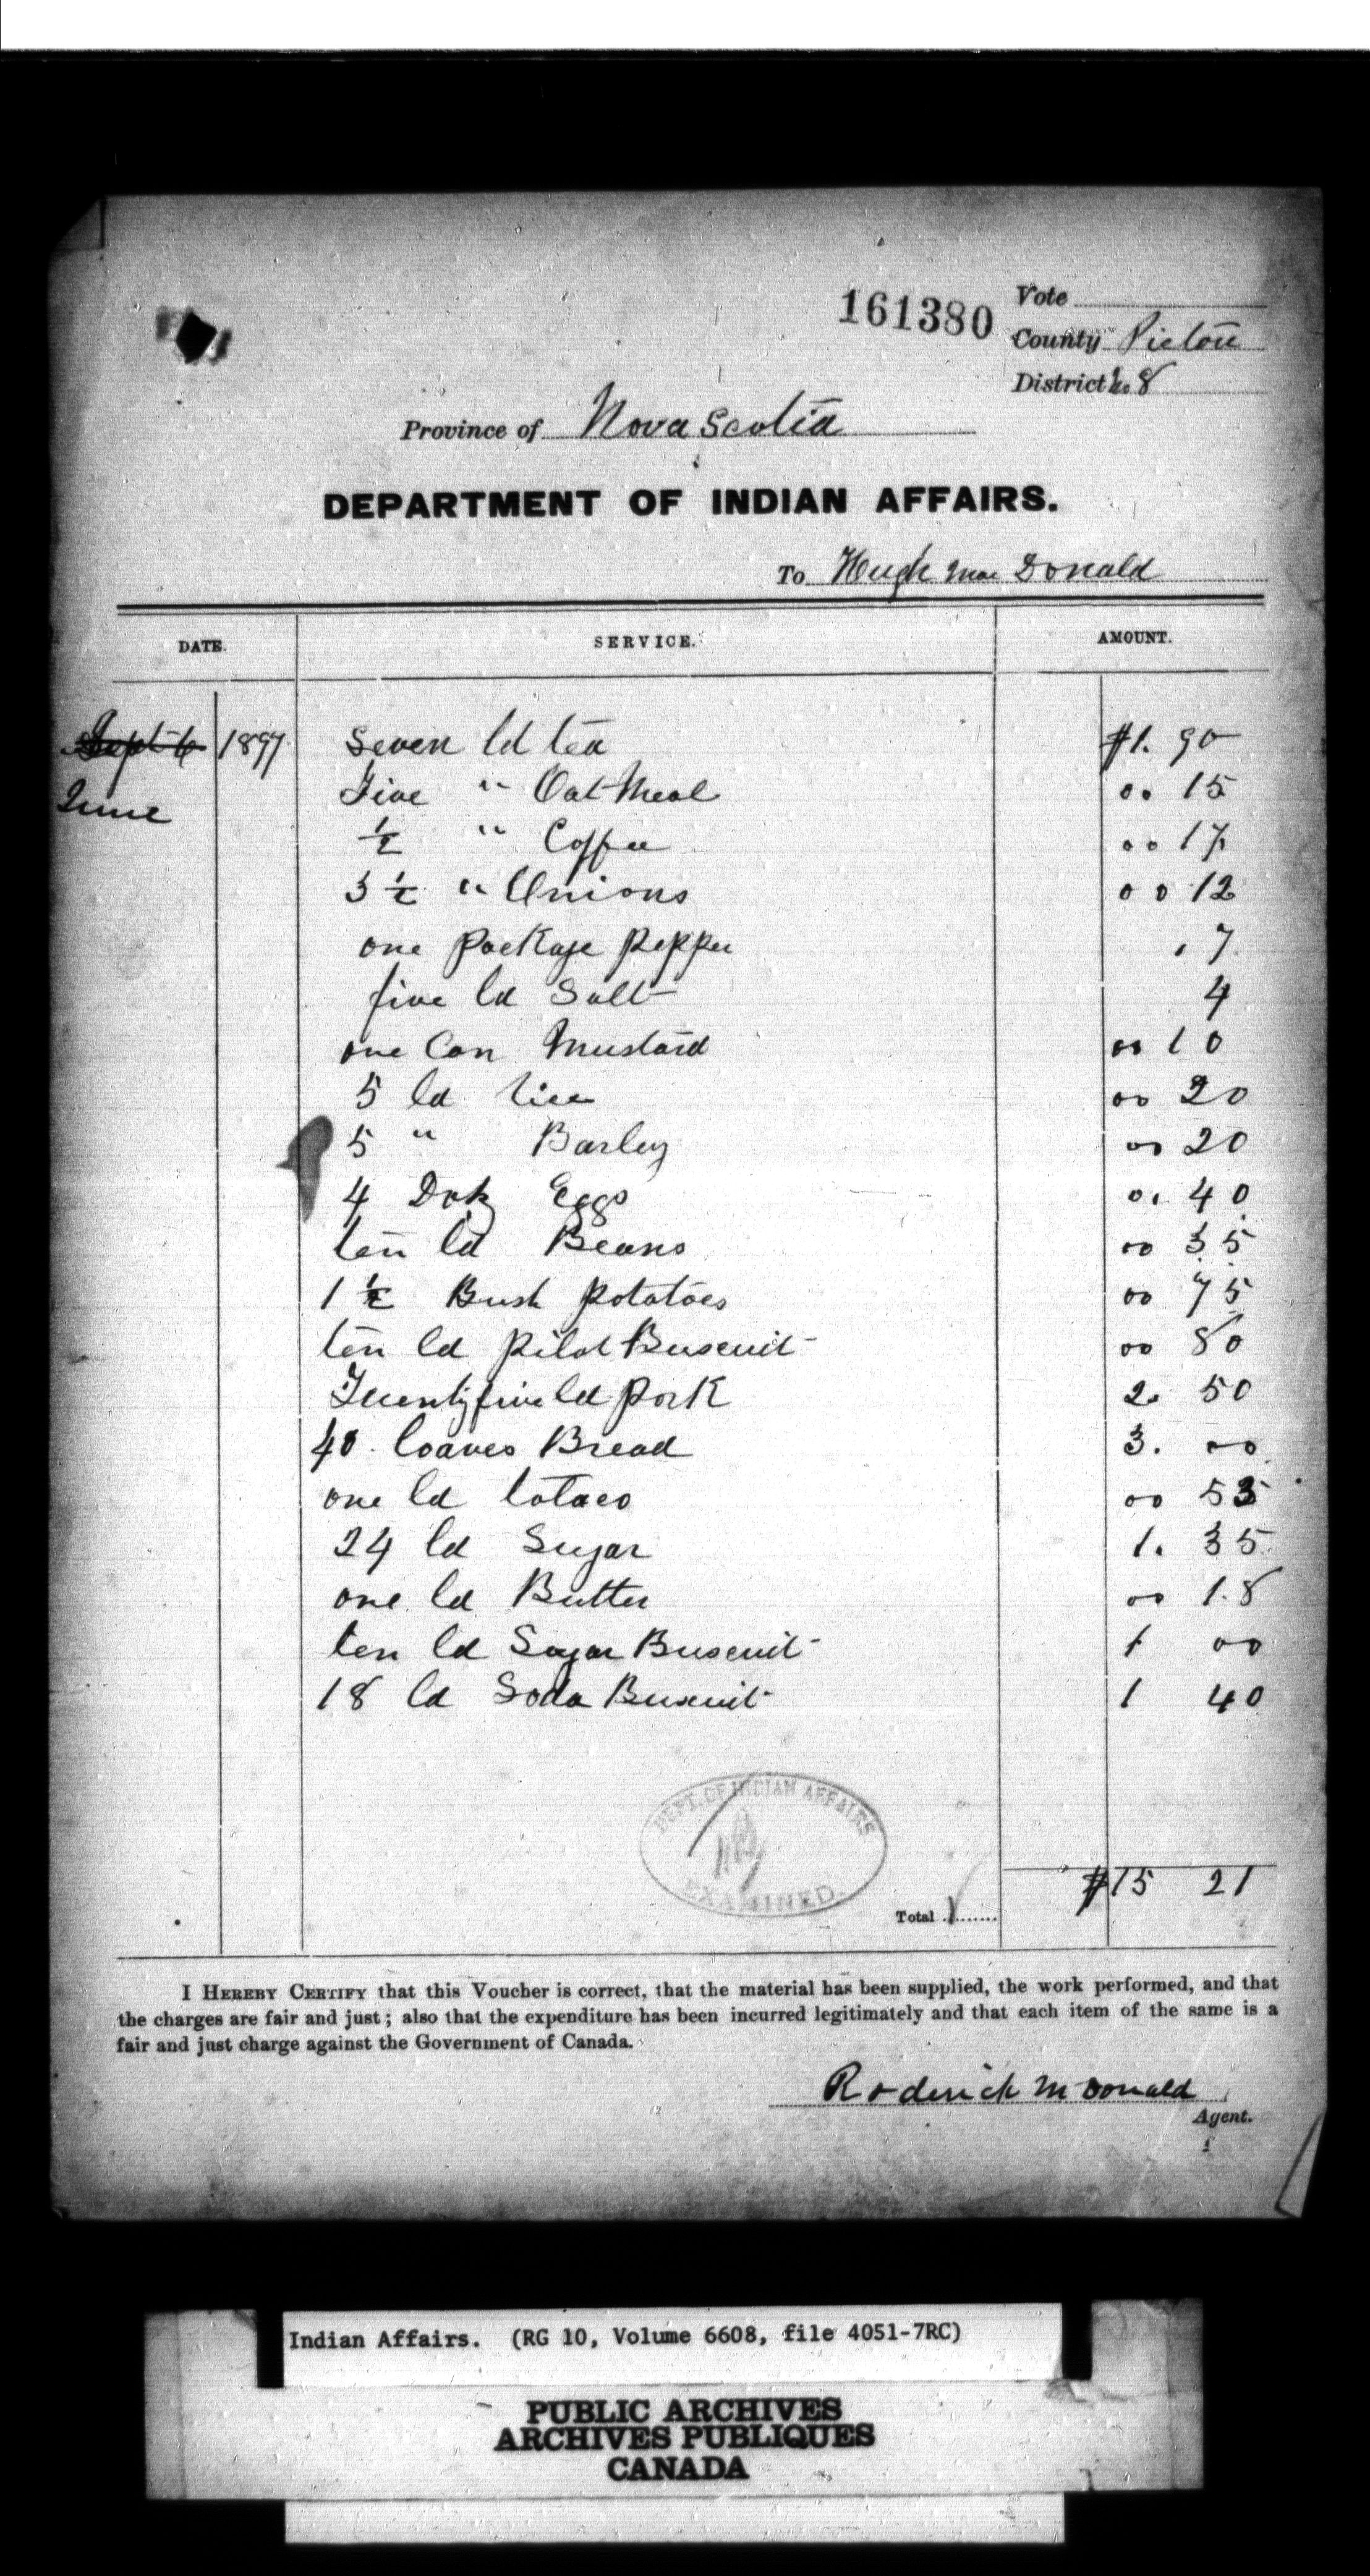 161380
Vote
County Pictou
District No 8
Province of Nova Scotia
DEPARTMENT OF INDIAN AFFAIRS.
To Hugh Mac Donald
DATE. SERVICE. AMOUNT.
Sept 6 1897 Seven ld tea $1. 90
June
Five " Oat Meal 0. 15
½ " Coffee 00 17
3 ½ " Unions 00 12
one Package Pepper . 7
five ld Salt 4
one Can Mustard 00 10
5 ld rice 00 20
5 " Barley 00 20
4 Doz Eggs 0. 40
ten ld Beans 00 35
1 ½ Bush Potatoes 00 75
ten ld Pilot Buscuit 00 80
Twenty five ld Pork 2. 50
40 loaves Bread 3. 00
one ld tobaco 00 53
24 ld Sugar 1. 35
one ld Butter 00 1.8
ten ld Sugar Buscuit 1 00
18 ld Soda Buscuit 1 40
DEPT. OF INDIAN AFFAIRS
EXAMINED.
Total $15 21
I HEREBY CERTIFY that this Voucher is correct, that the material has been supplied, the work performed, and that
the charges are fair and just; also that the expenditure has been incurred legitimately and that each item of the same is a
fair and just charge against the Government of Canada.
Roderick McDonald
Agent.
Indian Affairs. (RG 10, Volume 6608, file 4051-7RC)
PUBLIC ARCHIVES
ARCHIVES PUBLIQUES
CANADA